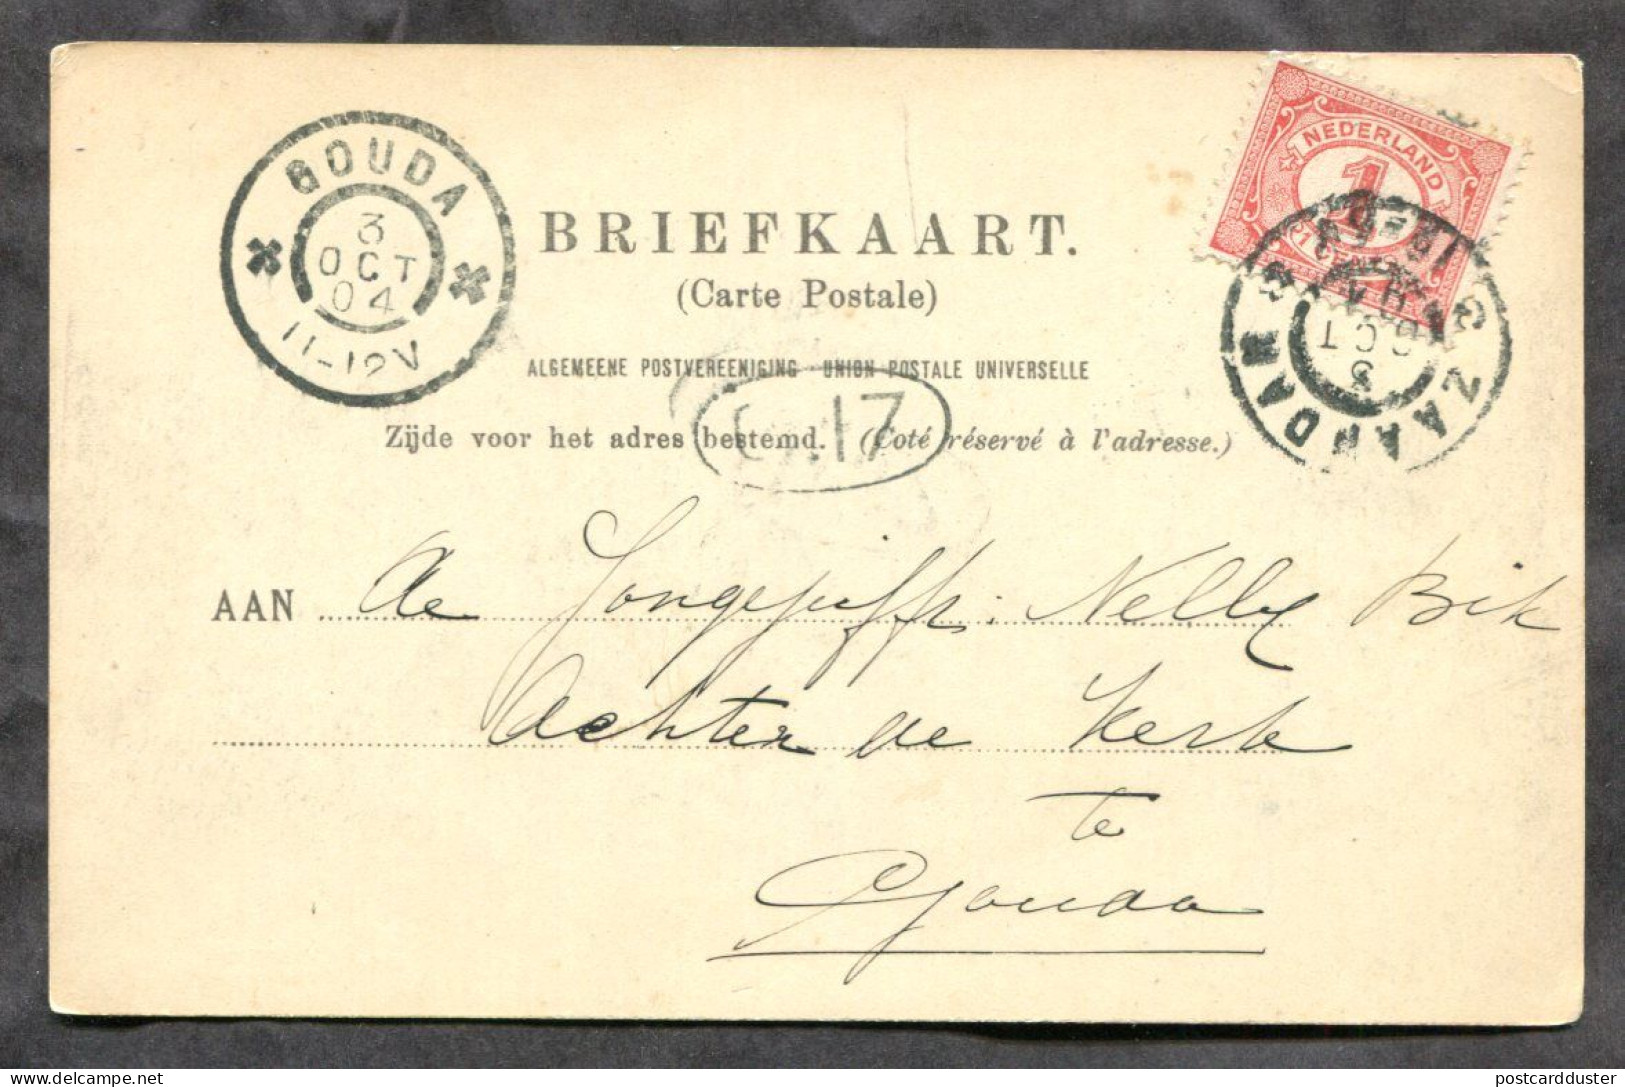 GOUDA
3
OCT
04
11-12V
NEDERLAND
1
1 CENT
ZAANDAM
3
OCT
BRIEFKAART.
(Carte Postale)
ALGEMEENE POSTVEREENIGING - UNION POSTALE UNIVERSELLE
17
Zijde voor het adres bestemd. (Coté réservé à l'adresse.)
AAN de Jongejuffr. Nelly Bik
Achter de Kerk
te
Gouda
postcardduster